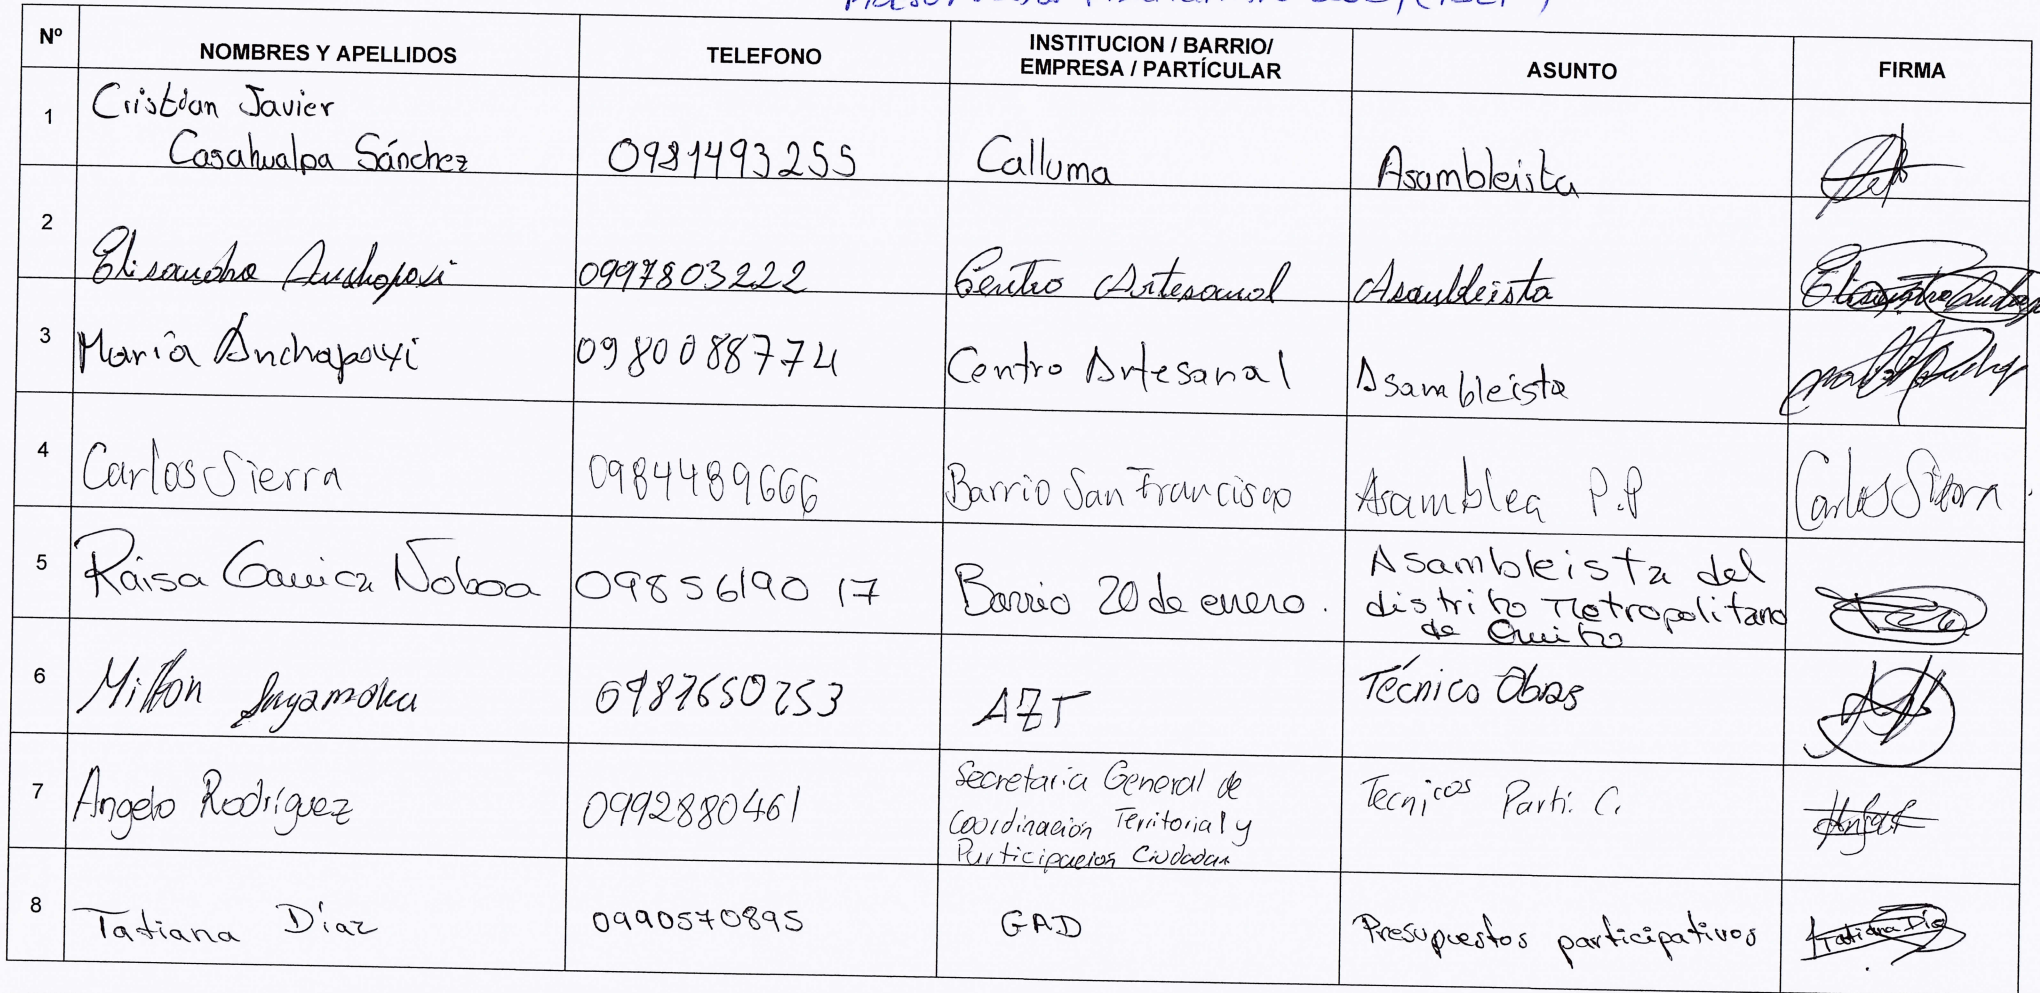 Nº NOMBRES Y APELLIDOS TELEFONO INSTITUCION / BARRIO/ EMPRESA / PARTÍCULAR ASUNTO FIRMA
1 Cristian Javier
Casahualpa Sánchez 0981493255 Calluma Asambleista
2 Elisandro Anchapaxi 0997803222 Centro Artesanal Asambleista
3 María Anchapaxi 0980088774 Centro Artesanal Asambleista
4 Carlos Sierra 0984489666 Barrio San Francisco Asamblea P.P Carlos Sierra
5 Raisa Gavica Noboa 0985619017 Barrio 20 de enero. Asambleista del
distrito Metropolitano
de Quito
6 Milton 0987650253 AZT Técnico Obras
7 Angelo Rodríguez 0992880461 Secretaria General de
Coordinación Territorial y
Participacion Ciudadan
Tecnicos Parti. C.
8 Tatiana Díaz 0990570895 GAD Presupuestos participativos Tatiana Díaz